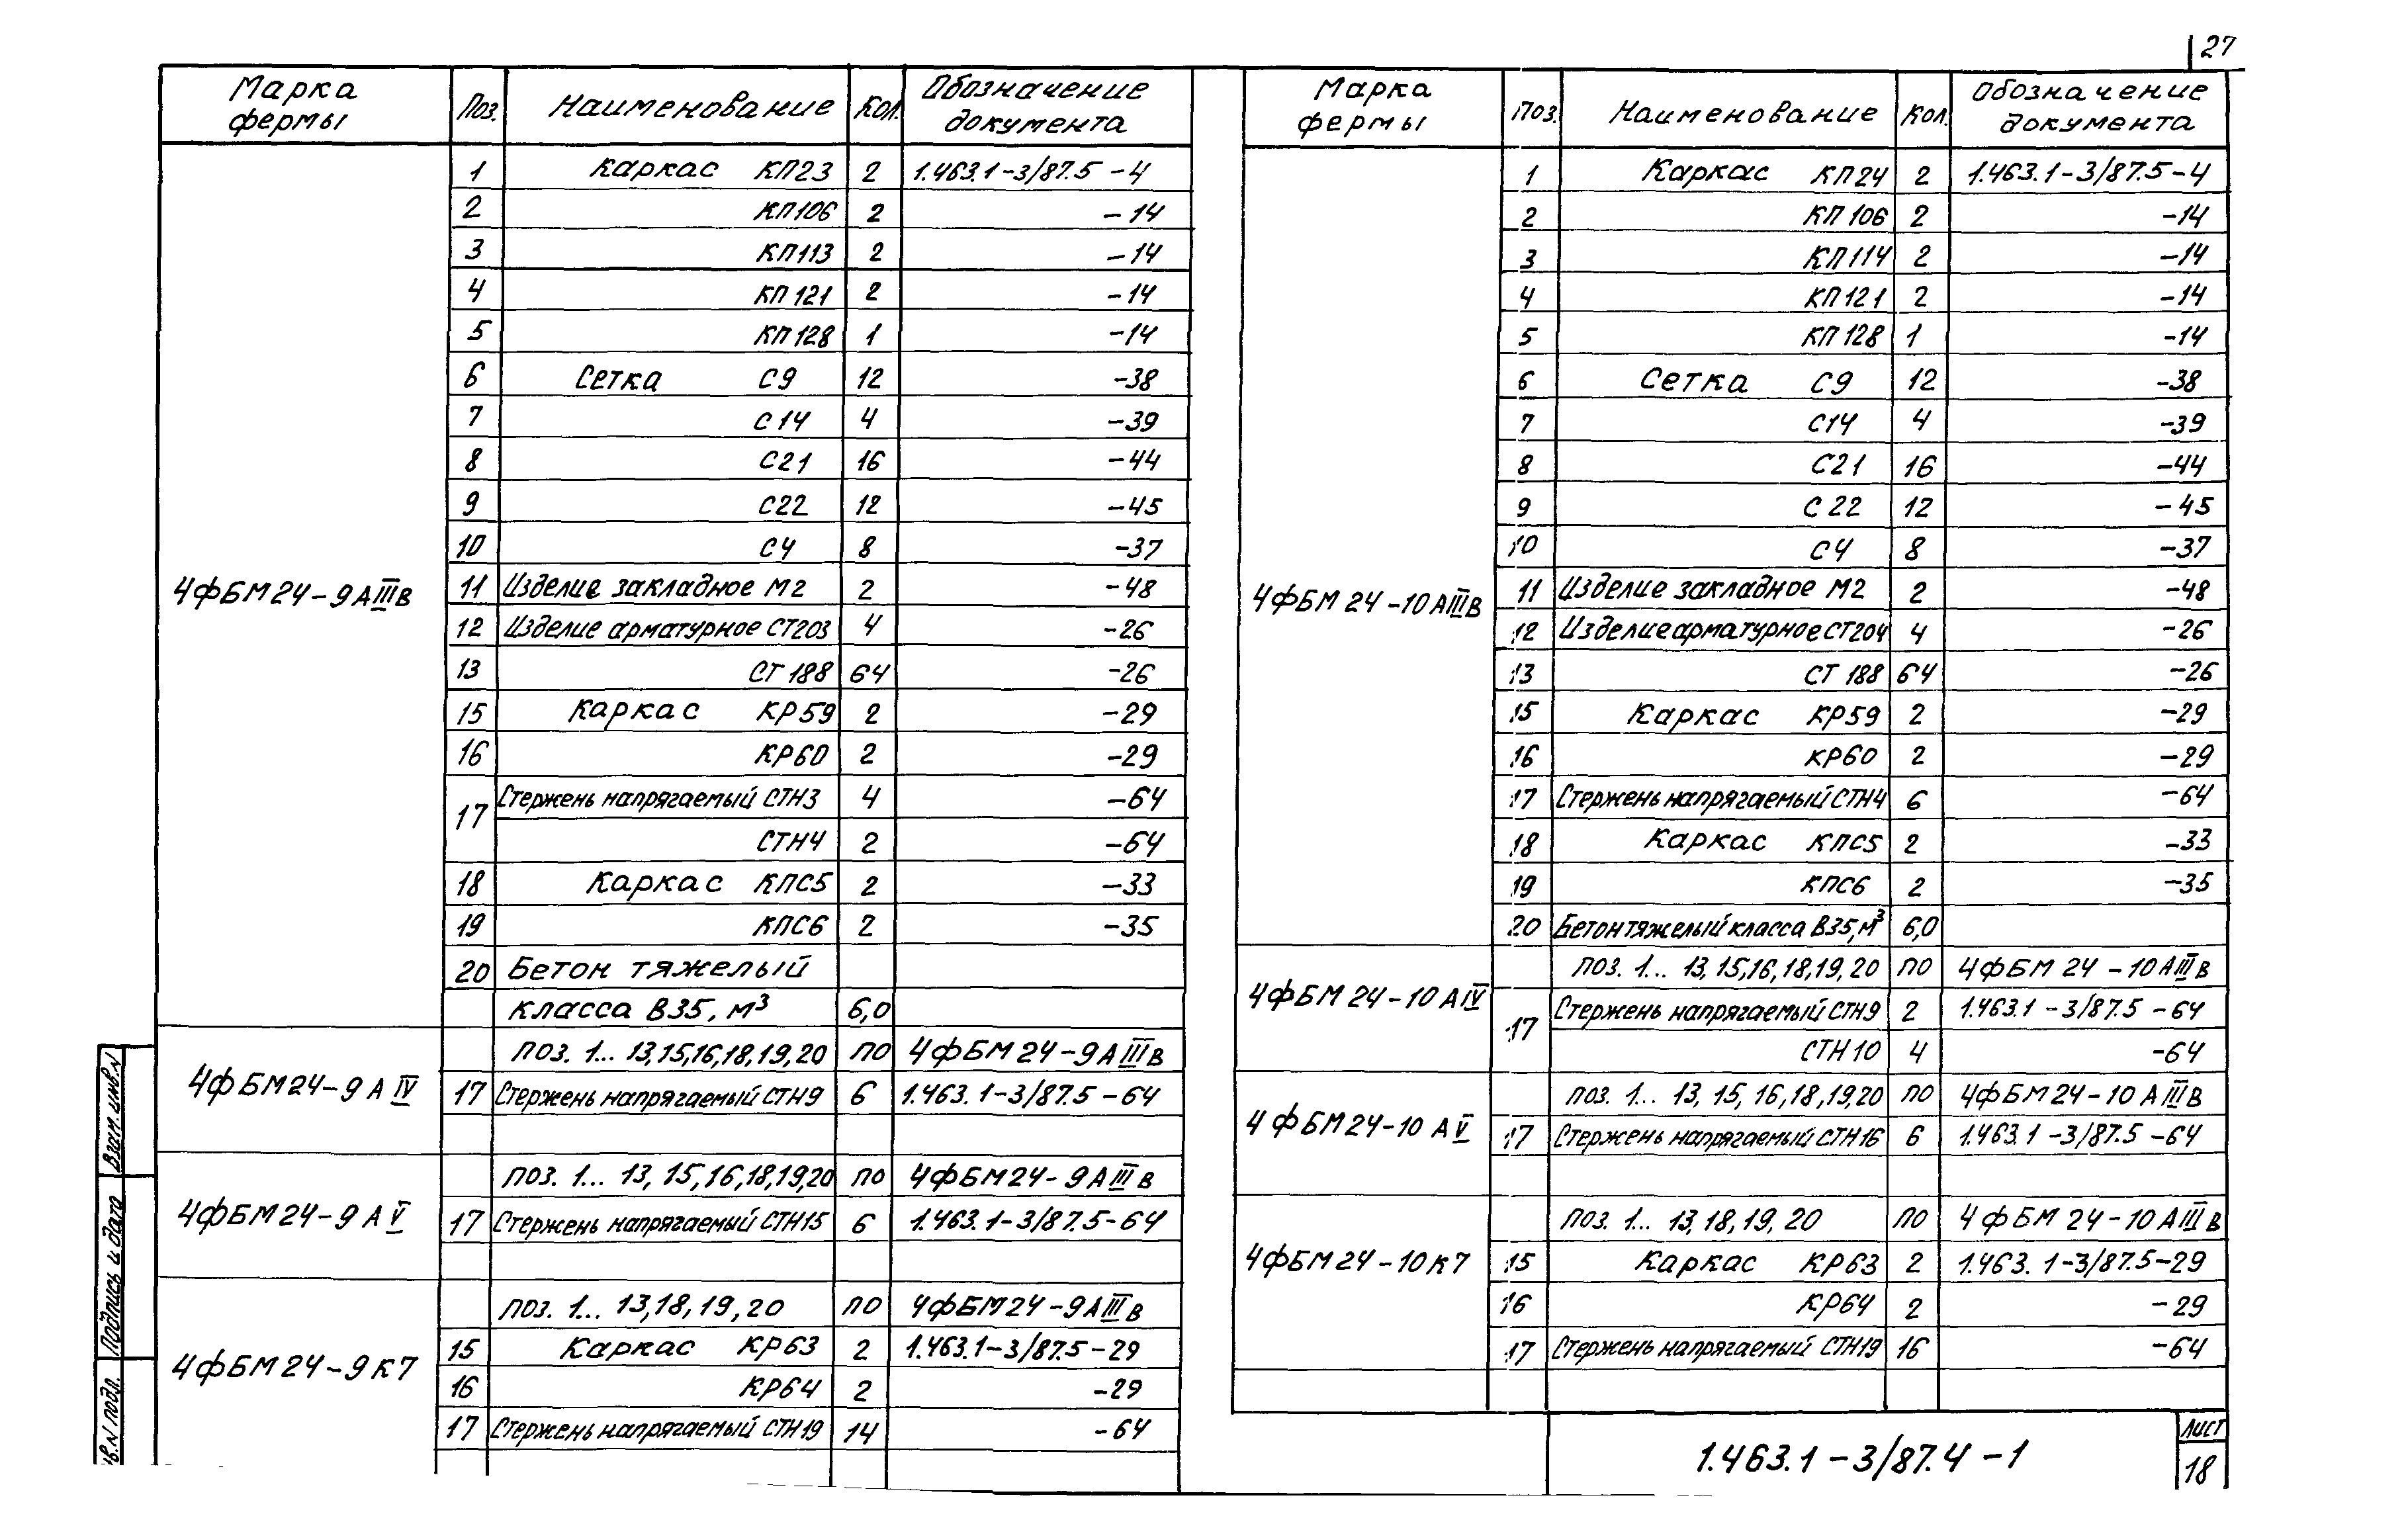 27
Марка фермы | Поз. | Наименование | Кол. | Обозначение документа
4ФБМ24-9АIIIв
1 | Каркас КП23 | 2 | 1.463.1-3/87.5-4
2 | КП106 | 2 | -14
3 | КП113 | 2 | -14
4 | КП121 | 2 | -14
5 | КП128 | 1 | -14
6 | Сетка С9 | 12 | -38
7 | С14 | 4 | -39
8 | С21 | 16 | -44
9 | С22 | 12 | -45
10 | С4 | 8 | -37
11 | Изделие закладное М2 | 2 | -48
12 | Изделие арматурное СТ203 | 4 | -26
13 | СТ188 | 64 | -26
15 | Каркас КР59 | 2 | -29
16 | КР60 | 2 | -29
17 | Стержень напрягаемый СТН3 | 4 | -64
СТН4 | 2 | -64
18 | Каркас КПС5 | 2 | -33
19 | КПС6 | 2 | -35
20 | Бетон тяжелый
класса В35, м³ | 6,0
4ФБМ24-9АIV
поз. 1... 13,15,16,18,19,20 | по | 4ФБМ24-9АIIIв
17 | Стержень напрягаемый СТН9 | 6 | 1.463.1-3/87.5-64
4ФБМ24-9АV
поз. 1... 13, 15,16,18,19,20 | по | 4ФБМ24-9АIIIв
17 | Стержень напрягаемый СТН15 | 6 | 1.463.1-3/87.5-64
4ФБМ24-9К7
поз. 1... 13,18,19,20 | по | 4ФБМ24-9АIIIв
15 | Каркас КР63 | 2 | 1.463.1-3/87.5-29
16 | КР64 | 2 | -29
17 | Стержень напрягаемый СТН19 | 14 | -64
Марка фермы | Поз. | Наименование | Кол. | Обозначение документа
4ФБМ24-10АIIIв
1 | Каркас КП24 | 2 | 1.463.1-3/87.5-4
2 | КП106 | 2 | -14
3 | КП114 | 2 | -14
4 | КП121 | 2 | -14
5 | КП128 | 1 | -14
6 | Сетка С9 | 12 | -38
7 | С14 | 4 | -39
8 | С21 | 16 | -44
9 | С22 | 12 | -45
10 | С4 | 8 | -37
11 | Изделие закладное М2 | 2 | -48
12 | Изделие арматурное СТ204 | 4 | -26
13 | СТ188 | 64 | -26
15 | Каркас КР59 | 2 | -29
16 | КР60 | 2 | -29
17 | Стержень напрягаемый СТН4 | 6 | -64
18 | Каркас КПС5 | 2 | -33
19 | КПС6 | 2 | -35
20 | Бетон тяжелый класса В35, м³ | 6,0
4ФБМ24-10АIV
поз. 1... 13, 15,16, 18,19, 20 | по | 4ФБМ24-10АIIIв
17 | Стержень напрягаемый СТН9 | 2 | 1.463.1-3/87.5-64
СТН10 | 4 | -64
4ФБМ24-10АV
поз. 1... 13, 15, 16,18,19,20 | по | 4ФБМ24-10АIIIв
17 | Стержень напрягаемый СТН16 | 6 | 1.463.1-3/87.5-64
4ФБМ24-10К7
поз. 1... 13,18,19,20 | по | 4ФБМ24-10АIIIв
15 | Каркас КР63 | 2 | 1.463.1-3/87.5-29
16 | КР64 | 2 | -29
17 | Стержень напрягаемый СТН19 | 16 | -64
1.463.1-3/87.4-1
Лист
18
Взам. инв.N
Подпись и дата
нв.N подл.